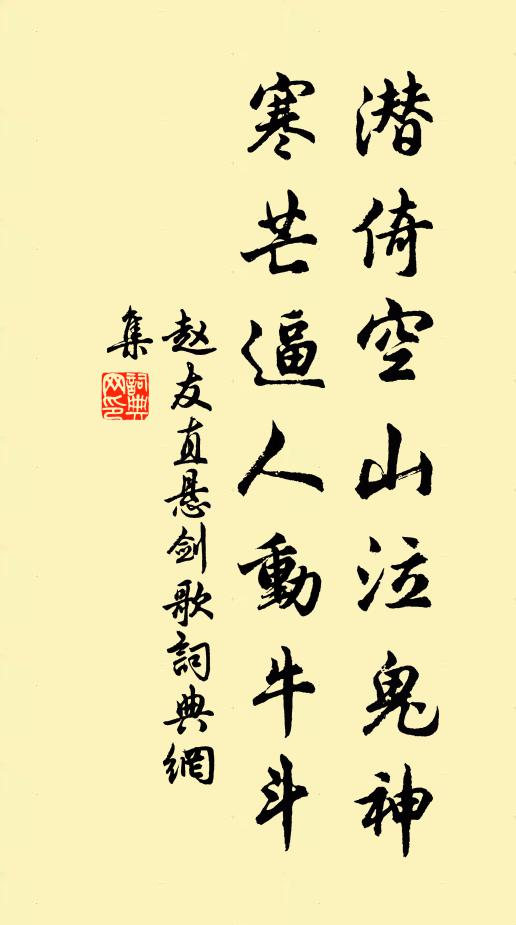 潜倚空山泣鬼神
寒芒逼人動牛斗
赵友直悬剑歌詞典網
集
詞典
网印